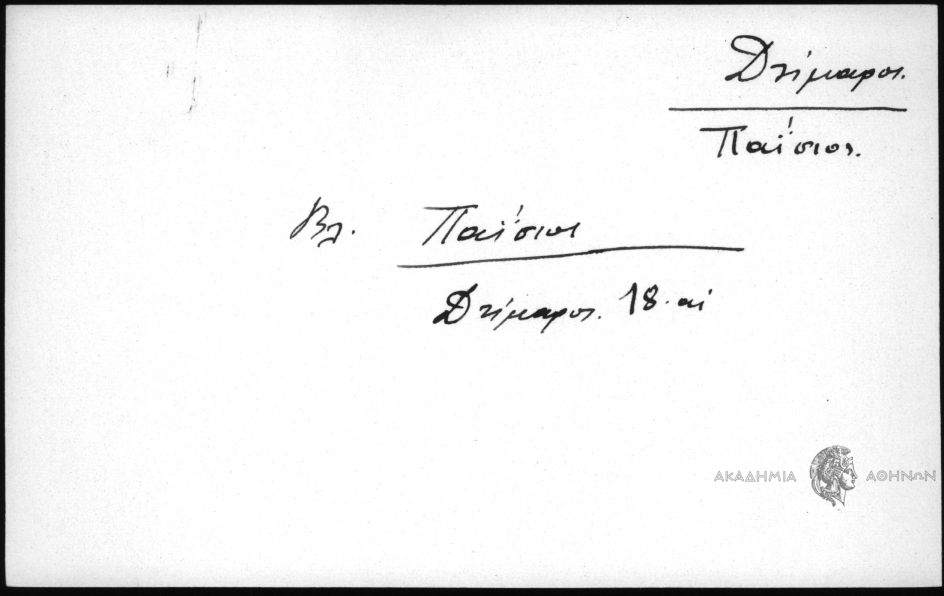 Δήμαρος.
Παΐσιος.
Βλ. Παΐσιος
Δήμαρος. 18. αἰ
ΑΚΑΔΗΜΙΑ ΑΘΗΝΩΝ